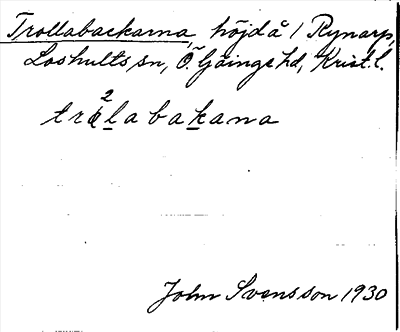 Trollabackarna, höjd å 1 Rynarp,
Loshults sn, Ö. Göinge hd, Krist. l.
tra²labakana
John Svensson 1930